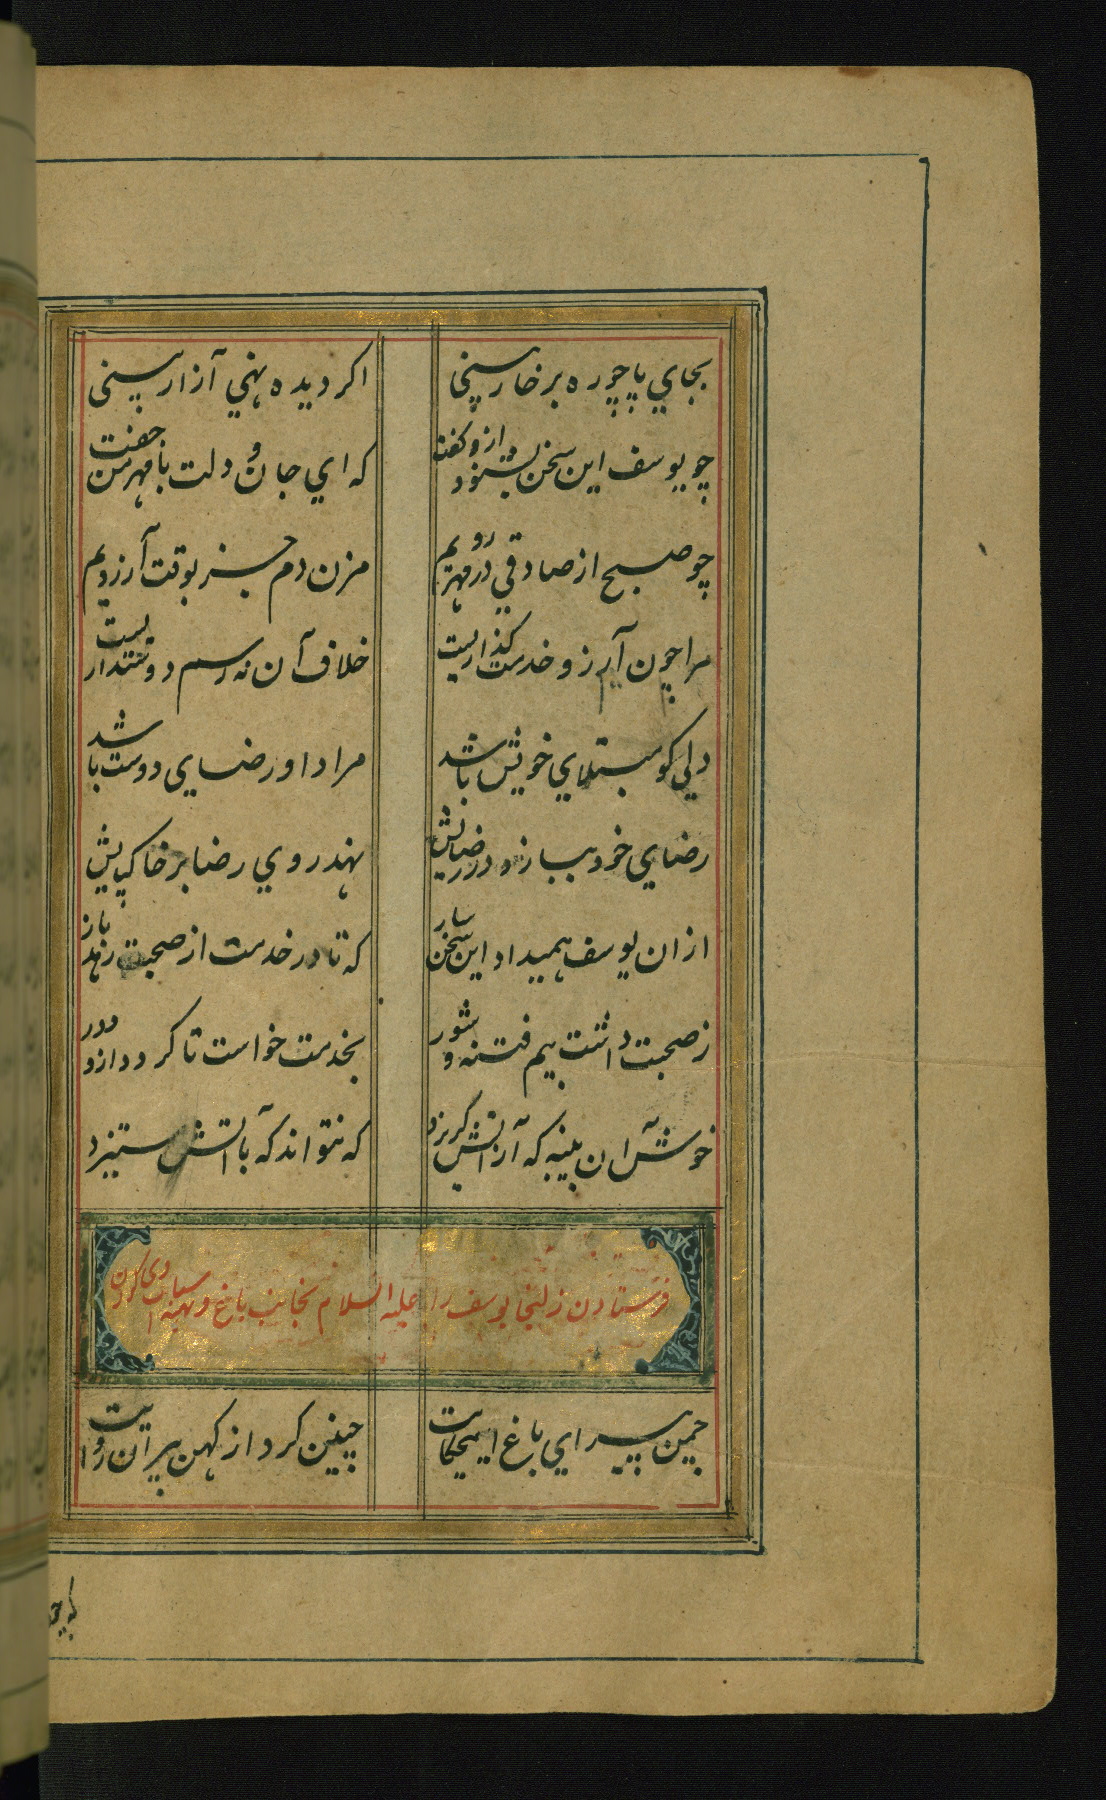 بجاي پا چو ره بر خار بيني اكر ديده نهي آزار بيني
چو يوسف اين سخن بشنود ازو كفت كه اي جان و دلت با مهر من جفت
چو صبح از صادقي در مهر رويم مزن دم جز بوقت آرزويم
مرا چون آرزو خدمت كذاريست خلاف آن نه رسم دوستداريست
دلي كو مبتلاي خويش باشد مراد او رضاي دوست باشد
رضاي خود ببازد در رضايش نهد روي رضا بر خاك پايش
از ان يوسف هميداد اين سخن ساز كه تا در خدمت از صحبت رهد باز
ز صحبت داشت بيم فتنه و شور بخدمت خواست تا كردد ازو دور
خوش آن پنبه كه آن از آتش كريزد كه نتواند كه با آتش ستيزد
فرستادن زليخا يوسف را عليه السلام بجانب باغ و تهيه اسباب وى كردن
چمن پيراي باغ اين حكايت چنين كرد از كهن پيران روايت